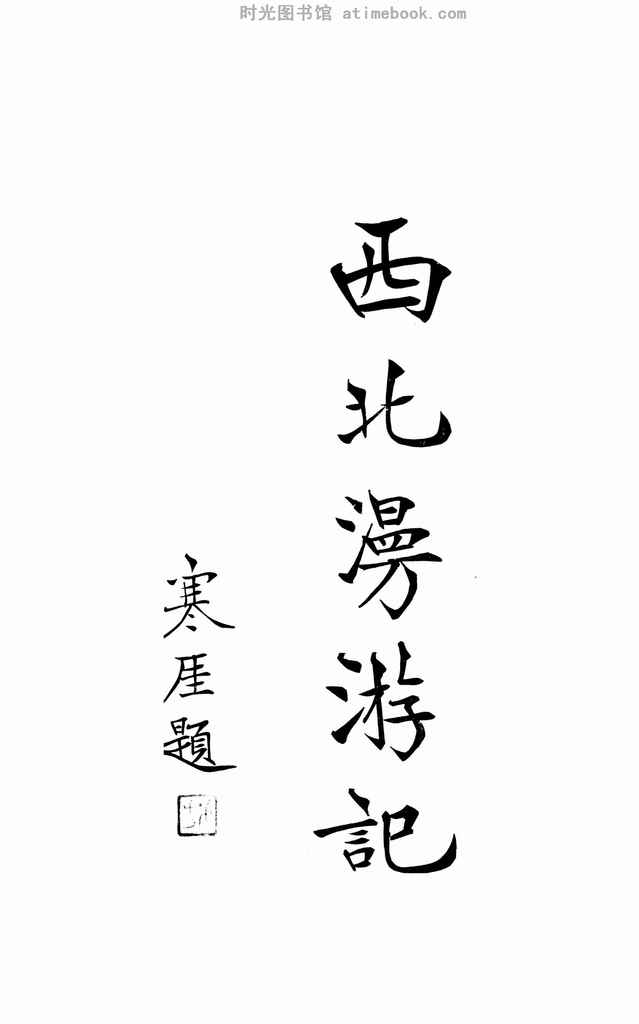 时光图书馆 atimebook.com
西北漫游記
寒厓題